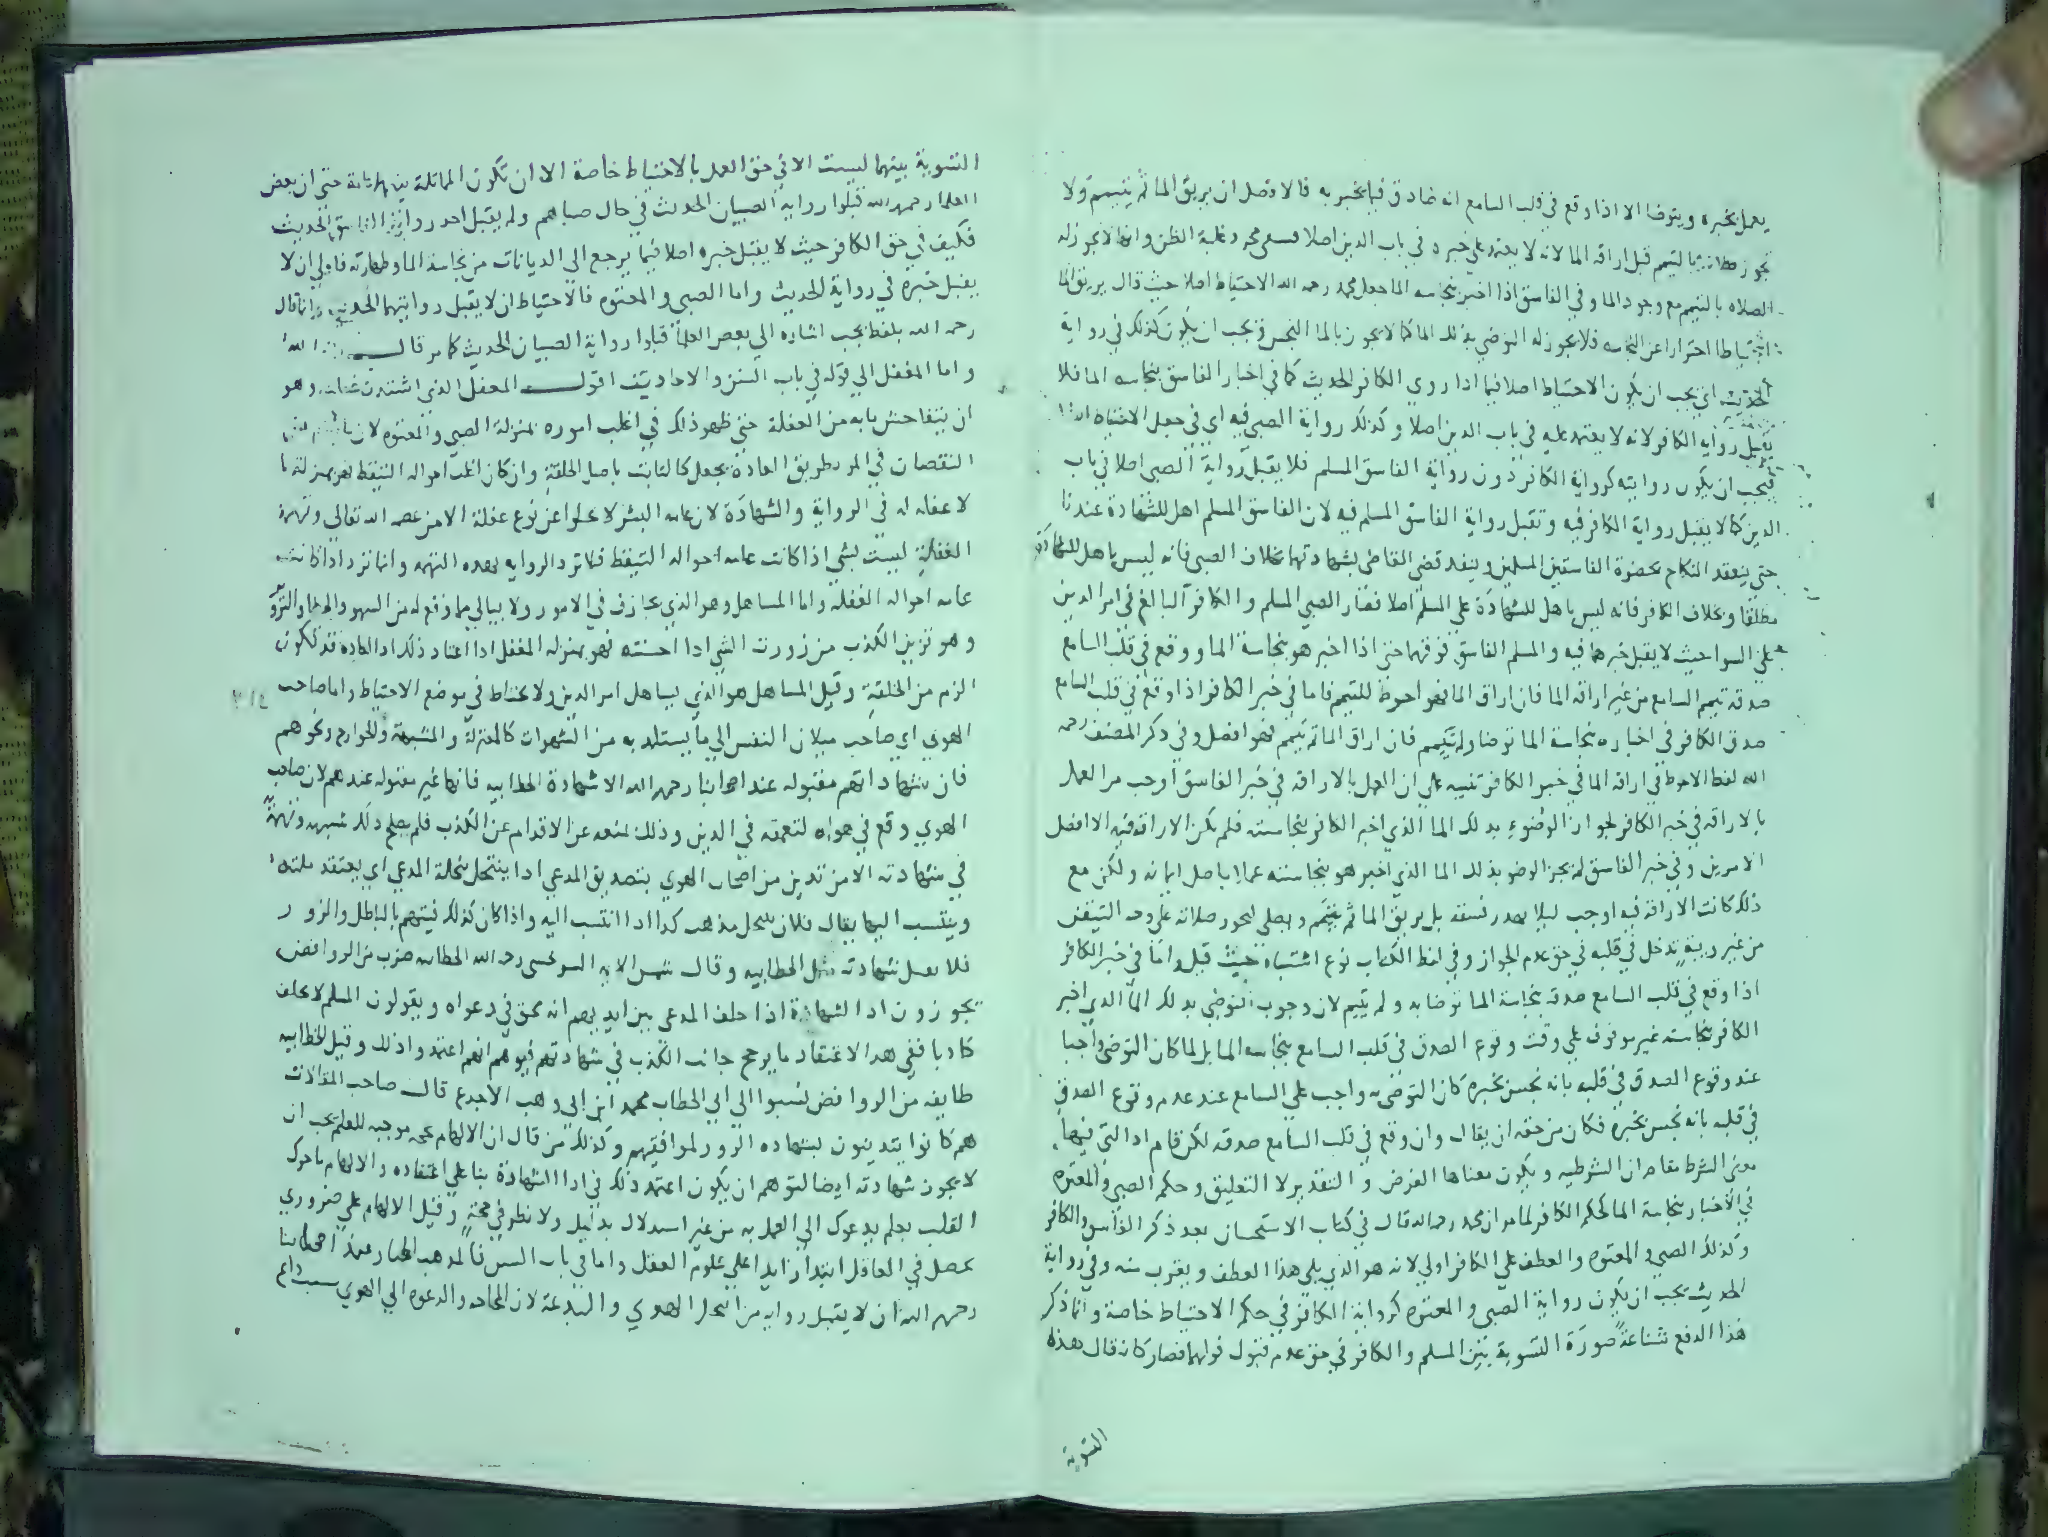 يعمل بخبره ويتوضا الا اذا وقع في قلب السامع انه صادق فيما يخبر به فالافضل ان يريق الما ثم يتيمم ولا
تجوز صلاته بالتيمم قبل اراقه الما لانه لا يعتمد علي خبره في باب الدين اصلا فبقي مجرد غلبة الظن وانها لا يجوز له
الصلاه بالتيمم مع وجود الما وفي الفاسق اذا اخبر بنجاسه الما جعل محمد رحمه الله الاحتياط اصلا حيث قال يريق الما
احتياطا احترازا عن النجاسه فلا يجوز له التوضي بذلك الما كما لا يجوز بالما النجس فيجب ان يكون كذلك في رواية
الحديث اي يجب ان يكون الاحتياط اصلا فيما اذا روي الكافر الحديث كما في اخبار الفاسق بنجاسه الما فلا
يقبل روايه الكافر لانه لا يعتمد عليه في باب الدين اصلا وكذلك رواية الصبي فيه اي في جعل الاحتياط اصلا
فيجب ان يكون روايته كرواية الكافر دون رواية الفاسق المسلم فلا يقبل رواية الصبي اصلا في باب
الدين كما لا يقبل رواية الكافر فيه وتقبل رواية الفاسق المسلم فيه لان الفاسق المسلم اهل للشهادة عندنا
حتي ينعقد النكاح بحضرة الفاسقين المسلمين وينفذ قضي القاضي بشهادتهما بخلاف الصبي فانه ليس باهل للشهادة
مطلقا وبخلاف الكافر فانه ليس باهل للشهادة علي المسلم اصلا فصار الصبي المسلم والكافر البالغ في امر الدين
علي السوا حيث لا يقبل خبرهما فيه والمسلم الفاسق فوقهما حتي اذا اخبر هو بنجاسة الما ووقع في قلب السامع
صدقه تيمم السامع من غير اراقه الما فان اراق الما فهو احوط للتيمم فاما في خبر الكافر اذا وقع في قلب السامع
صدق الكافر في اخباره بنجاسة الما توضا ولم يتيمم فان اراق الما ثم يتيمم فهو افضل وفي ذكر المصنف رحمه
الله لفظ الاحوط في اراقه الما في خبر الكافر تنبيه علي ان العمل بالاراقه في خبر الفاسق اوجب من العمل
بالاراقه في خبر الكافر لجواز الوضوء بذلك الما الذي اخبر الكافر بنجاسته فلم يكن الاراقه فيه الا افضل
الامرين وفي خبر الفاسق لم يجز الوضو بذلك الما الذي اخبر هو بنجاسته عملا باصل ايمانه ولكن مع
ذلك كانت الاراقه فيه اوجب ليلا يهدر فسقه بل يريق الما ثم يتيمم ويصلي لتجوز صلاته علي وجه التيقن
من غير ريبة تدخل في قلبه في حق عدم الجواز وفي لفظ الكتاب نوع اشتباه حيث قيل واما في خبر الكافر
اذا وقع في قلب السامع صدقه بنجاسة الما توضا به ولم يتيمم لان وجوب التوضي بذلك الما الذي اخبر
الكافر بنجاسته غير موقوف علي وقت وقوع الصدق في قلب السامع بنجاسه الما بل لما كان التوضي واجبا
عند وقوع الصدق في قلبه بانه نجس بخبره كان التوضي به واجب علي السامع عند عدم وقوع الصدق
في قلبه بانه نجس بخبره فكان من حقه ان يقال وان وقع في قلب السامع صدقه لكن قام اذا التي فيها
معني الشرط مقام ان الشرطيه ويكون معناها الفرض والتقدير لا التعليق وحكم الصبي والمعتوه
في الاخبار بنجاسة الما كحكم الكافر لما مر ان محمد رحمه الله قال في كتاب الاستحسان بعد ذكر الفاسق والكافر
وكذلك الصبي والمعتوه والعطف علي الكافر اولي لانه هو الذي يلي هذا العطف ويقرب منه وفي رواية
الحديث يجب ان يكون رواية الصبي والمعتوه كرواية الكافر في حكم الاحتياط خاصة وانما ذكر
هذا الدفع شناعة صورة التسوية بين المسلم والكافر في حق عدم قبول قولهما فصار كانه قال بهذه
التسوية
التسوية بينهما ليست الا في حق العمل بالاحتياط خاصة الا ان تكون المماثلة بينهما ثابتة حتي ان بعض
العلما رحمهم الله قبلوا رواية الصبيان الحديث في حال صباهم ولم يقبل احد رواية الفاسق الحديث
فكيف في حق الكافر حيث لا يقبل خبره اصلا فيما يرجع الي الديانات من نجاسة الما وطهارته فاولي ان لا
يقبل خبره في رواية الحديث واما الصبي والمعتوه فالاحتياط ان لا يقبل روايتهما الحديث وانما قال
رحمه الله بلفظ يجب اشاره الي بعض العلما قبلوا رواية الصبيان الحديث كما مر قال الله
واما المغفل الي قوله في باب السنن والاحاديث اقول المغفل الذي اشتدت غفلته وهو
ان يتفاحش مابه من الغفلة حتي ظهر ذلك في اغلب اموره بمنزلة الصبي والمعتوه لان
النقصان في المرء بطريق العادة يجعل كالثابت باصل الخلقة وان كان اغلب احواله التيقظ فهو بمنزلة ما
لا غفله له في الرواية والشهادة لان عامه البشر لا يخلوا عن نوع غفلة الا من عصمه الله تعالي وتهمة
الغفلة ليست بشي اذا كانت عامه احواله التيقظ فلا ترد الروايه بهذه التهمه وانما ترد اذا كانت
عامه احواله الغفله واما المساهل وهو الذي يجازف في الامور ولا يبالي بما وقع له من السهو والخطا والتزوير
وهو تزيين الكذب من زورت الشي اذا احسنته فهو بمنزله المغفل اذا اعتاد ذلك اذ العادة قد تكون
الزم من الخلقة وقيل المساهل هو الذي يساهل امر الدين ولا يحتاط في موضع الاحتياط واما صاحب
الهوي اي صاحب ميلان النفس الي ما يستلذ به من الشهوات كالمعتزلة والمشبهة والخوارج ونحوهم
فان شهاداتهم مقبوله عند اصحابنا رحمهم الله الا شهادة الخطابيه فانها غير مقبوله عندهم لان صاحب
الهوي وقع في هواه لتعمقه في الدين وذلك لمنعه عن الاقدام عن الكذب فلم يصلح ذلك شبهه وتهمة
في شهادته الا من تدين من اصحاب الهوي بتصديق المدعي اذا ينتحل بنحلة المدعي اي يعتقد ملته
وينتسب اليها يقال فلان ينتحل مذهب كذا اذا انتسب اليه واذا كان كذلك فيتهم بالباطل والزور
فلا يقبل شهادته مثل الخطابيه وقال شمس الايه السرخسي رحمه الله الخطابيه ضرب من الروافض
يجوزون ادا الشهادة اذا حلف المدعي بين ايديهم انه محق في دعواه ويقولون المسلم لا يحلف
كاذبا ففي هذا الاعتقاد ما يرجح جانب الكذب في شهادتهم فيوهم انهم اعتمدوا ذلك وقيل الخطابيه
طايفه من الروافض نسبوا الي ابي الخطاب محمد ابن ابي وهب الاجدع قال صاحب المقالات
هم كانوا يتدينون بشهاده الزور لموافقيهم وكذلك من قال ان الالهام حجه موجبه للعلم يجب ان
لا يجوز شهادته ايضا لتوهم ان يكون اعتمد ذلك في ادا الشهادة بنا علي اعتقاده والالهام ما حرك
القلب بعلم يدعوك الي العمل به من غير استدلال بدليل ولا نظر في حجة وقيل الالهام علي ضروري
يحصل في العاقل ابتدا زايدا علي علوم العقل واما في باب السنن فالمذهب المختار عندنا
رحمهم الله ان لا يقبل روايه من انتحل الهوي والبدعة لان المحاجه والدعوه الي الهوي سبب داع